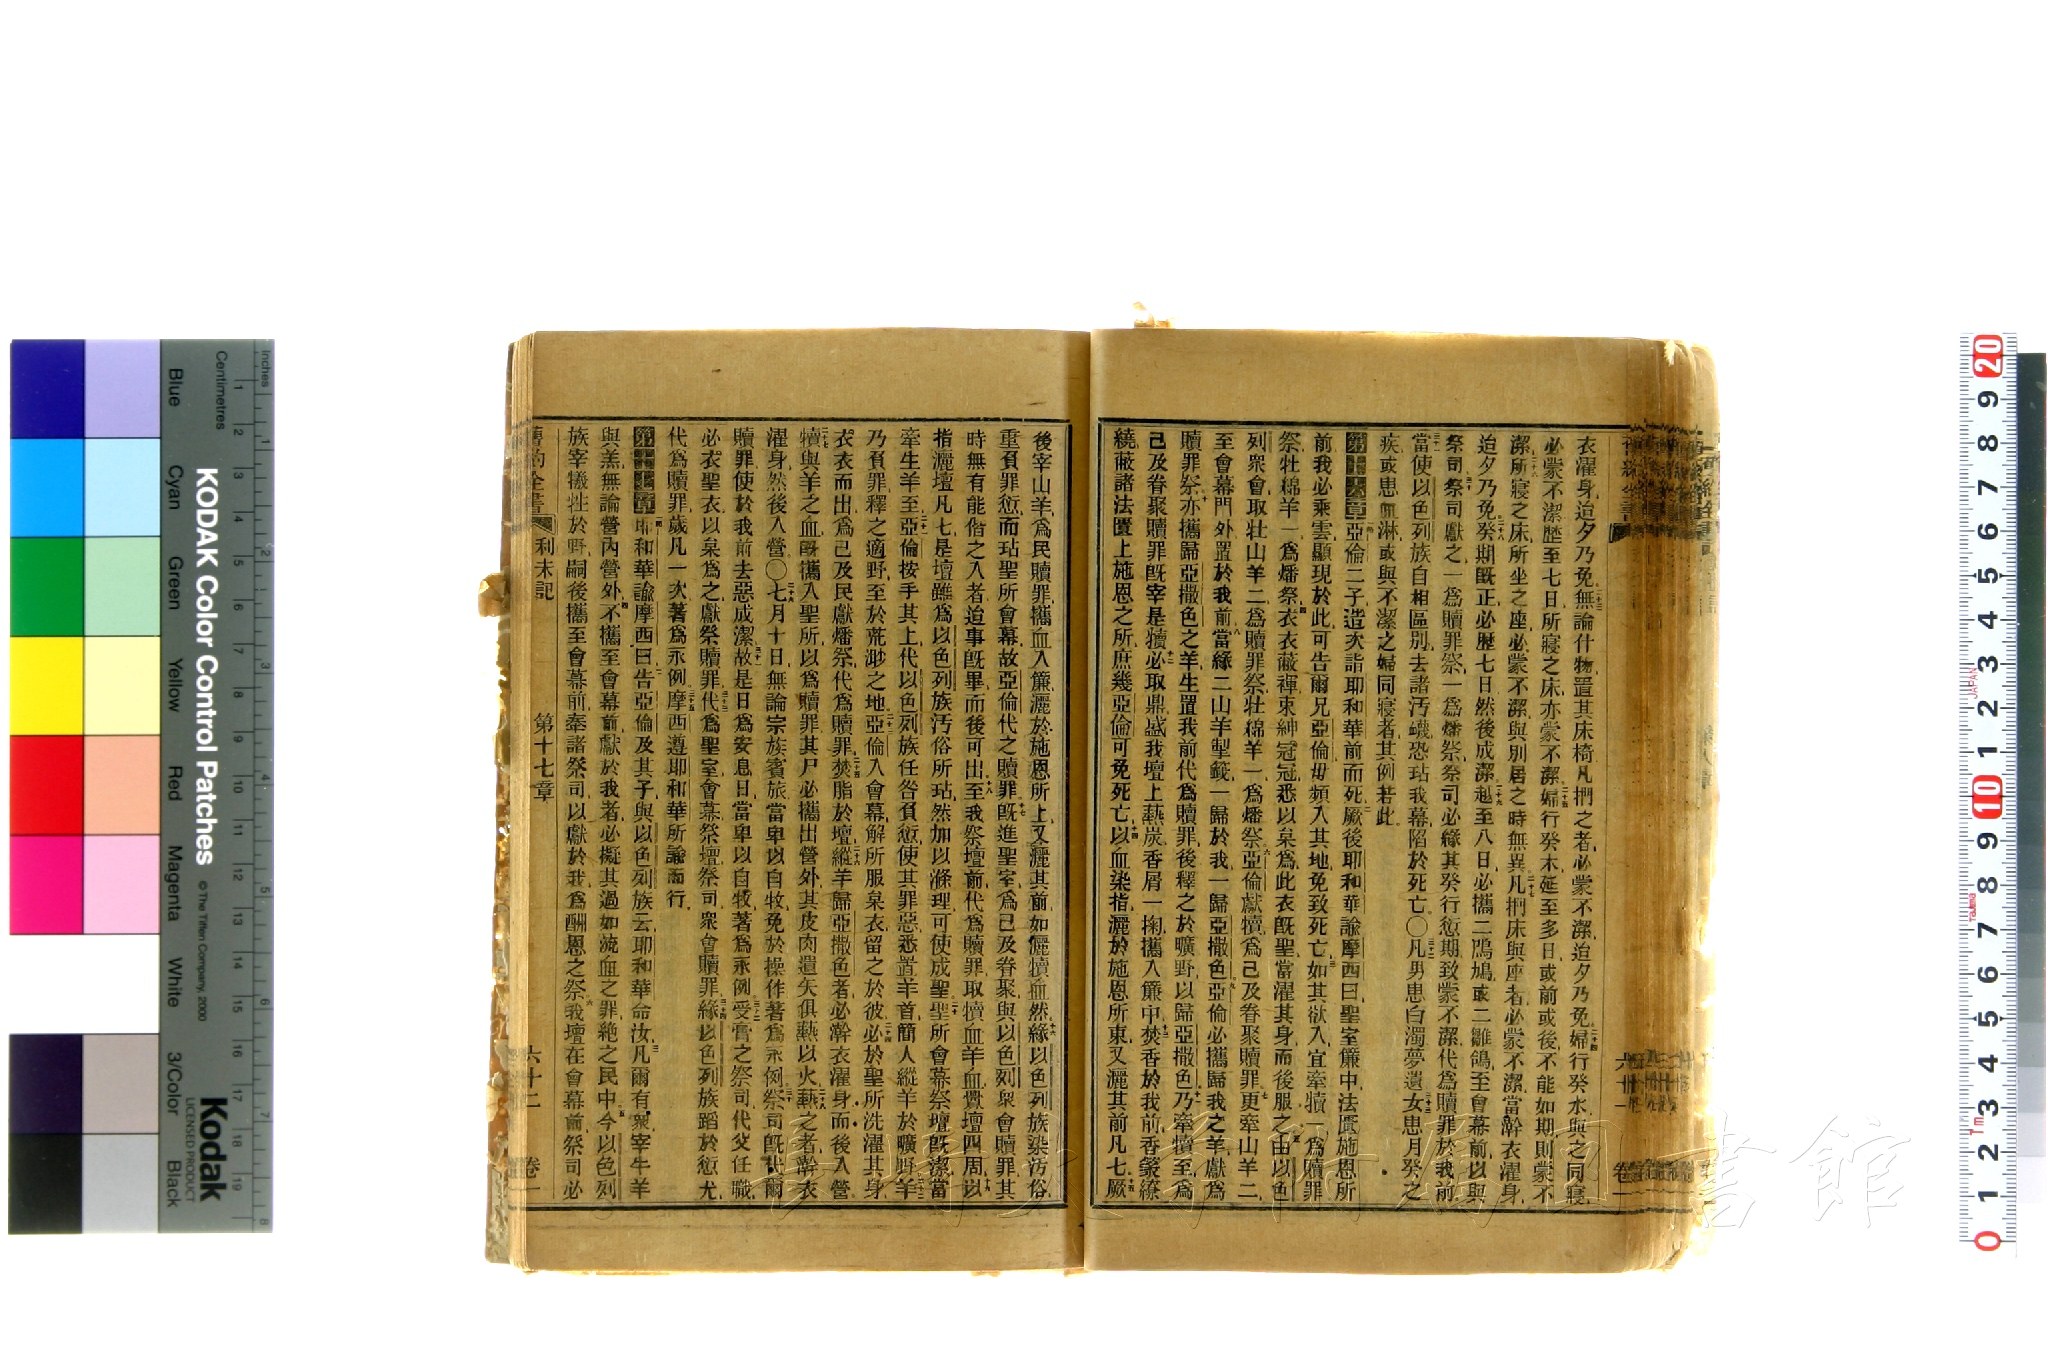 衣濯身迨夕乃免無論什物置其床椅凡捫之者必蒙不潔迨夕乃免婦行癸水與之同寢
必蒙不潔歷至七日所寢之床亦蒙不潔婦行癸水延至多日或前或後不能如期則蒙不
潔所寢之床所坐之座必蒙不潔與別居之時無異凡捫床與座者必蒙不潔當澣衣濯身
迨夕乃免癸期旣正必歷七日然後成潔越至八日必攜二鳲鳩或二雛鴿至會幕前以與
祭司祭司獻之一爲贖罪祭一爲燔祭祭司必緣其癸行愆期致蒙不潔代爲贖罪於我前
當使以色列族自相區別去諸汚衊恐玷我幕陷於死亡〇凡男患白濁夢遺女患月癸之
疾或患血淋或與不潔之婦同寢者其例若此
第十六章亞倫二子造次詣耶和華前而死厥後耶和華諭摩西曰聖室簾中法匱施恩所
前我必乘雲顯現於此可告爾兄亞倫毋頻入其地免致死亡如其欲入宜牽犢一爲贖罪
祭牡綿羊一爲燔祭衣衣蔽褌束紳冠冠悉以枲爲此衣旣聖當濯其身而後服之由以色
列衆會取牡山羊二爲贖罪祭牡綿羊一爲燔祭亞倫獻犢爲己及眷聚贖罪更牽山羊二
至會幕門外置於我前當緣二山羊掣籤一歸於我一歸亞撒色亞倫必攜歸我之羊獻爲
贖罪祭亦攜歸亞撒色之羊生置我前代爲贖罪後釋之於曠野以歸亞撒色乃牽犢至爲
己及眷聚贖罪旣宰是犢必取鼎盛我壇上爇炭香屑一掬攜入簾中焚香於我前香篆繚
繞蔽諸法匱上施恩之所庶幾亞倫可免死亡以血染指灑於施恩所東又灑其前凡七厥
後宰山羊爲民贖罪攜血入簾灑於施恩所上又灑其前如儷犢血然緣以色列族染汚俗
重負罪愆而玷聖所會幕故亞倫代之贖罪旣進聖室爲己及眷聚與以色列衆會贖罪其
時無有能偕之入者迨事旣畢而後可出至我祭壇前代爲贖罪取犢血羊血釁壇四周以
指灑壇凡七是壇雖爲以色列族汚俗所玷然加以滌理可使成聖聖所會幕祭壇旣潔當
牽生羊至亞倫按手其上代以色列族任咎負愆使其罪惡悉置羊首簡人縱羊於曠野羊
乃負罪釋之適野至於荒渺之地亞倫入會幕解所服枲衣留之於彼必於聖所洗濯其身
衣衣而出爲己及民獻燔祭代爲贖罪焚脂於壇縱羊歸亞撒色者必澣衣濯身而後入營
犢與羊之血旣攜入聖所以爲贖罪其尸必攜出營外其皮肉遺矢俱爇以火爇之者澣衣
濯身然後入營〇七月十日無論宗族賓旅當卑以自牧免於操作著爲永例祭司旣代爾
贖罪使於我前去惡成潔故是日爲安息日當卑以自牧著爲永例受膏之祭司代父任職
必衣聖衣以枲爲之獻祭贖罪代爲聖室會幕祭壇祭司衆會贖罪緣以色列族蹈於愆尤
代爲贖罪歲凡一次著爲永例摩西遵耶和華所諭而行
第十七章耶和華諭摩西曰告亞倫及其子與以色列族云耶和華命汝凡爾有衆宰牛羊
與羔無論營內營外不攜至會幕前獻於我者必擬其過如流血之罪絶之民中今以色列
族宰犧牲於野嗣後攜至會幕前奉諸祭司以獻於我爲酬恩之祭我壇在會幕前祭司必
舊約全書 利未記 第十七章 六十二 卷一